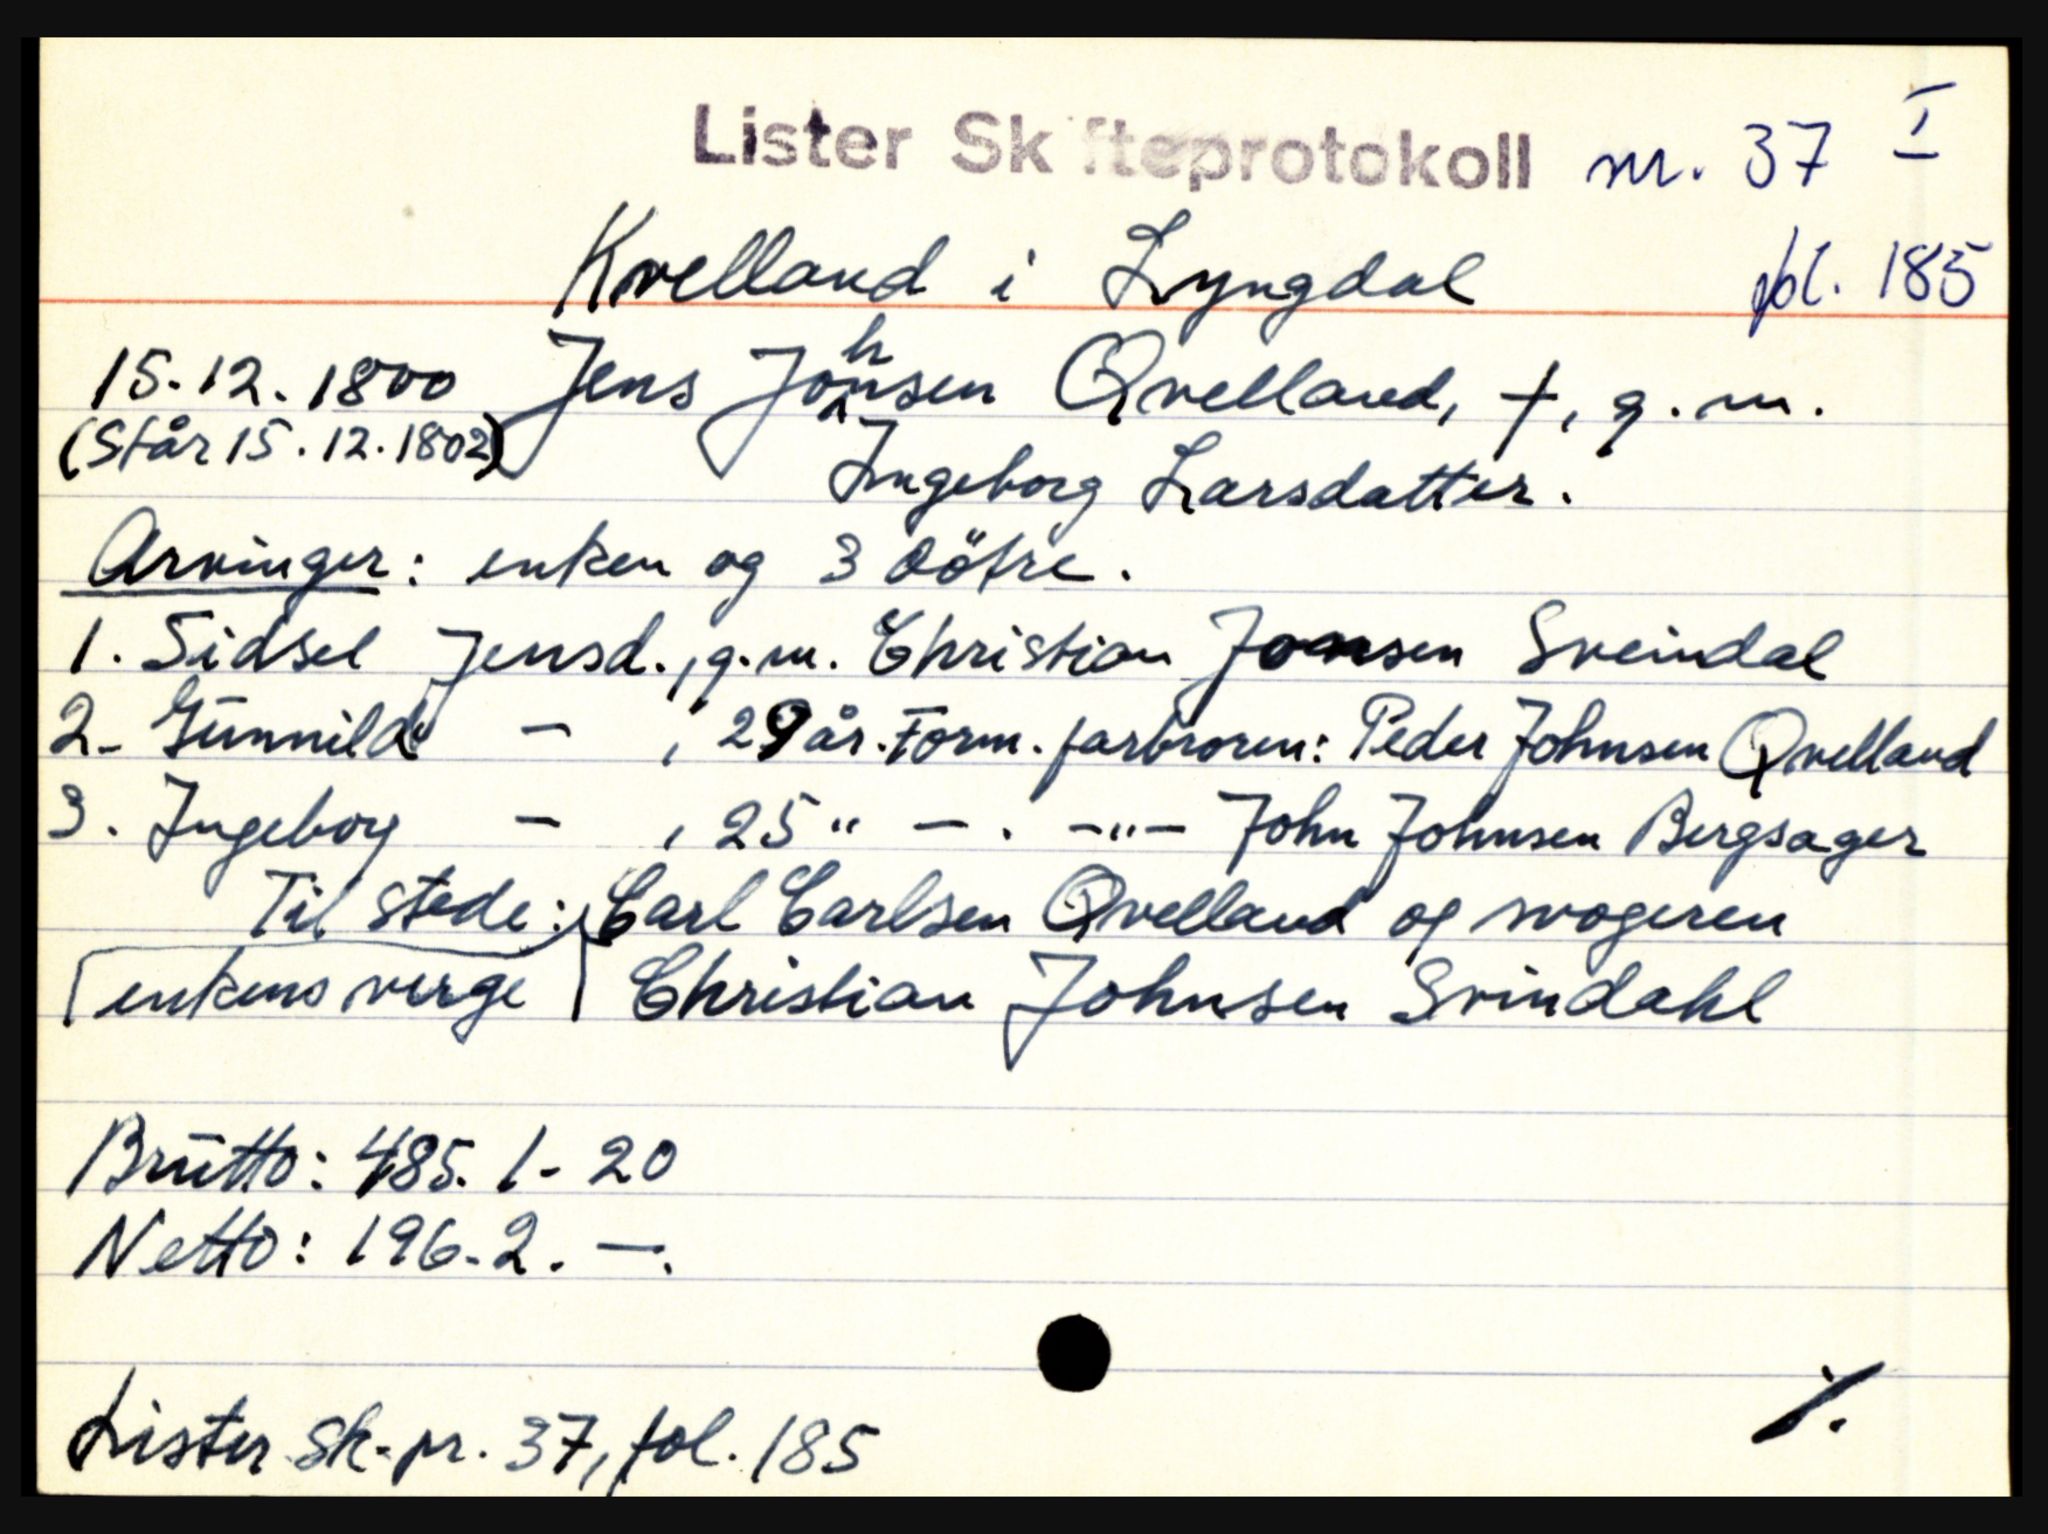 Lister Skifteprotokoll nr. 37 I
Kvelland i Lyngdal fol. 185
15.12.1800 Jens Johnsen Qvelland, †, g.m.
(Står 15.12.1802) Ingeborg Larsdatter.
Arvinger: enken og 3 dötre.
1. Sidsel Jensd., g.m. Christian Jonsen Sveindal
2. Gunnild - , 29 år. Form. farbroren: Peder Johnsen Qvelland
3. Ingeborg - , 25 " - . -"- John Johnsen Bergsager
Til stede: Carl Carlsen Qvelland og svogeren
enkens verge Christian Johnsen Svindahl
Brutto: 485. 1 - 20
Netto: 196. 2. -.
Lister sk.pr. 37, fol. 185